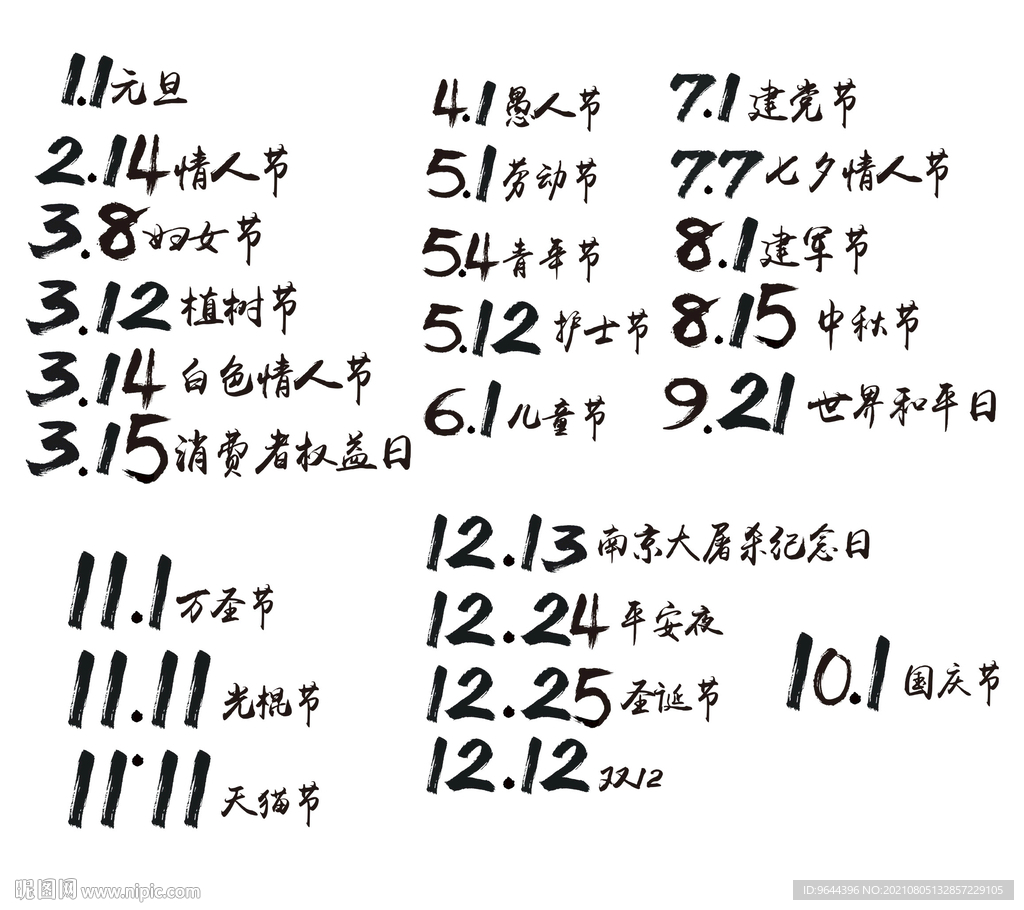 1.1元旦
2.14情人节
3.8妇女节
3.12植树节
3.14白色情人节
3.15消费者权益日
4.1愚人节
5.1劳动节
5.4青年节
5.12护士节
6.1儿童节
7.1建党节
7.7七夕情人节
8.1建军节
8.15中秋节
9.21世界和平日
11.1万圣节
11.11光棍节
11·11天猫节
12.13南京大屠杀纪念日
12.24平安夜
12.25圣诞节
12.12双12
10.1国庆节
昵图网 www.nipic.com
ID:9644396 NO:20210805132857229105